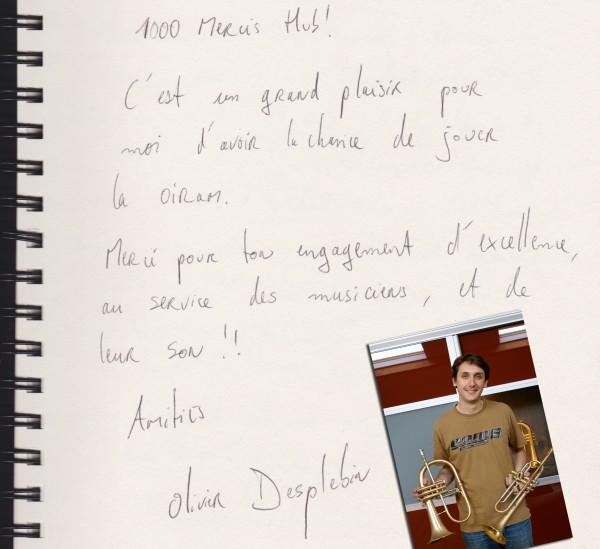 1000 Mercis Hub!
C'est un grand plaisir pour
moi d'avoir la chance de jouer
la Oiram.
Merci pour ton engagement d'excellence,
au service des musiciens, et de
leur son !!
Amitiés
Olivier Desplebin